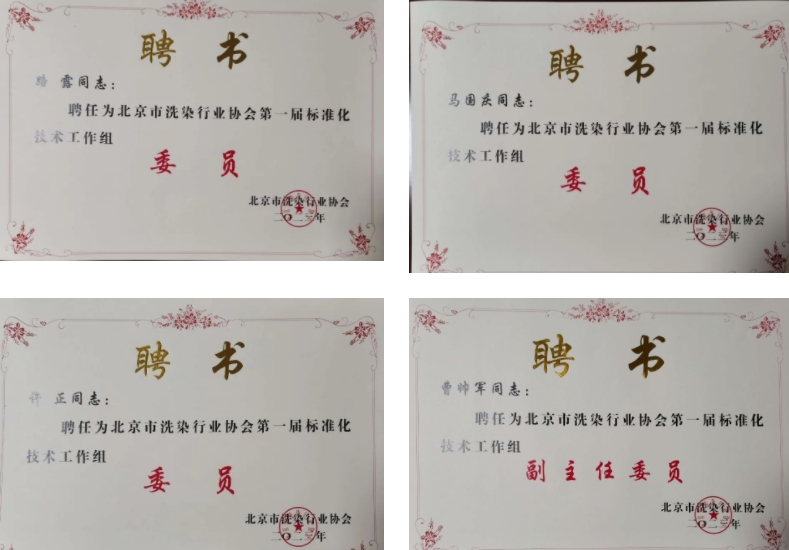 聘 书
路 露同志：
聘任为北京市洗染行业协会第一届标准化
技术工作组
委 员
北京市洗染行业协会
二〇二三年
聘 书
马国庆同志：
聘任为北京市洗染行业协会第一届标准化
技术工作组
委 员
北京市洗染行业协会
二〇二三年
聘 书
许 正同志：
聘任为北京市洗染行业协会第一届标准化
技术工作组
委 员
北京市洗染行业协会
二〇二三年
聘 书
曹帅军同志：
聘任为北京市洗染行业协会第一届标准化
技术工作组
副主任委员
北京市洗染行业协会
二〇二三年